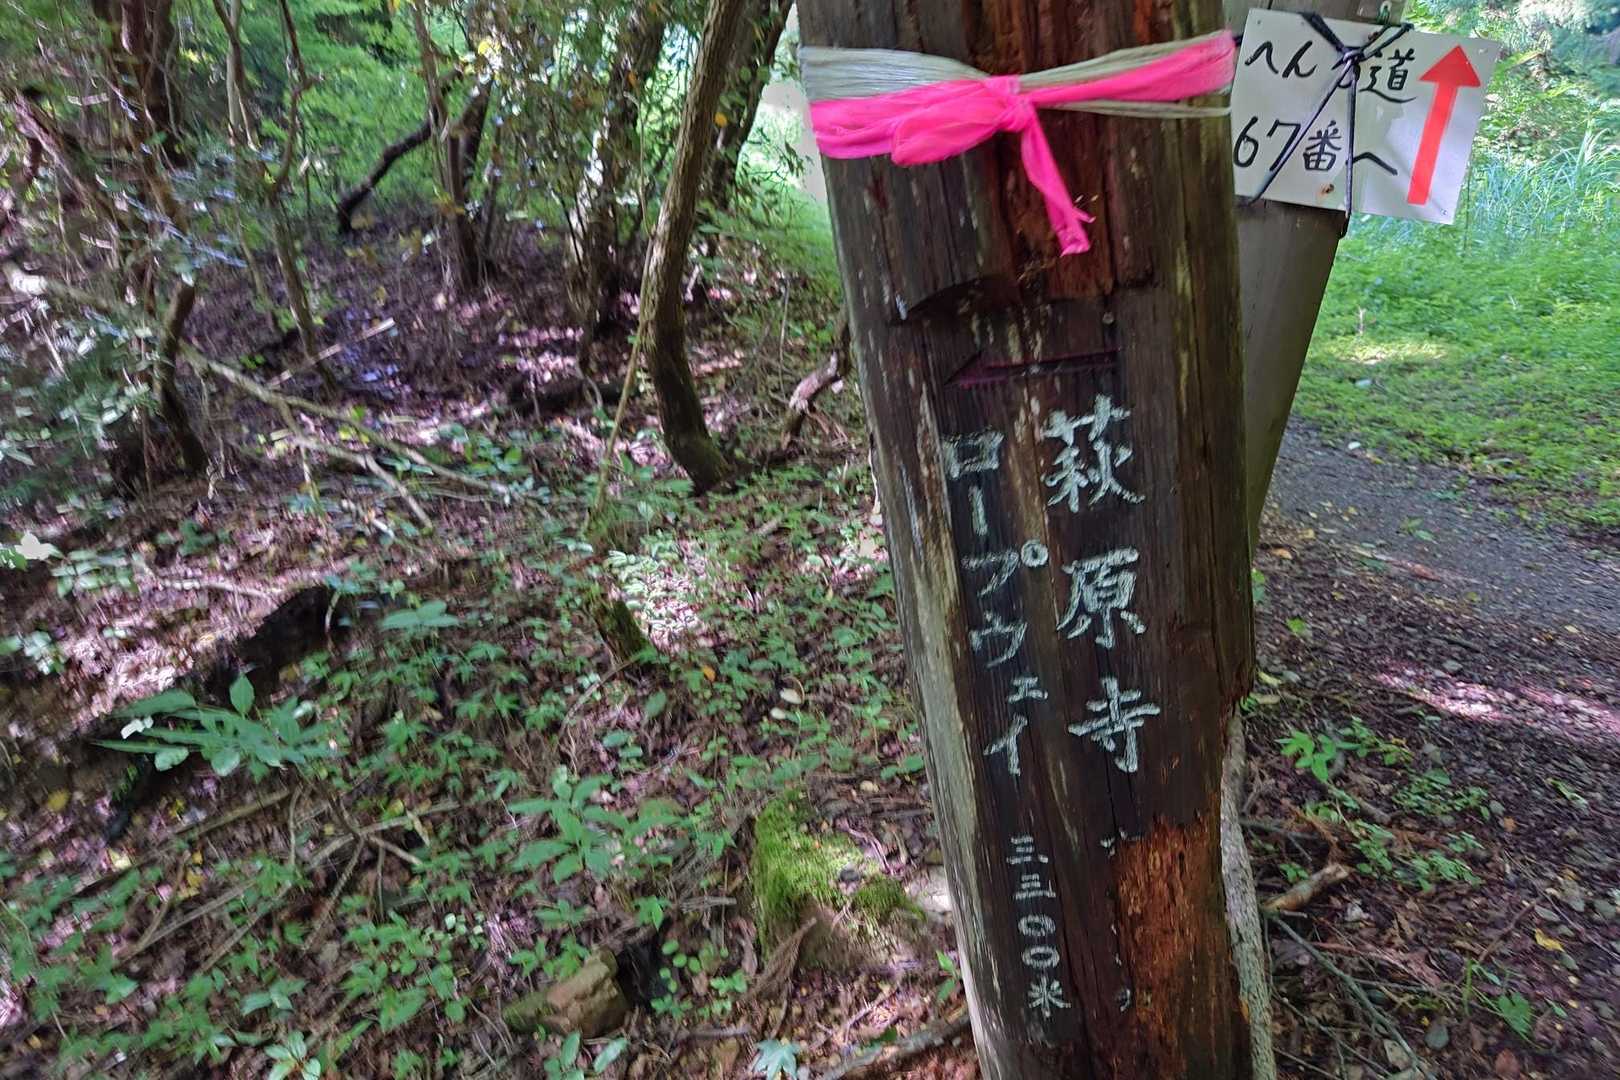 へんろ道
67番へ
萩原寺
ロープウェイ
三三〇〇米